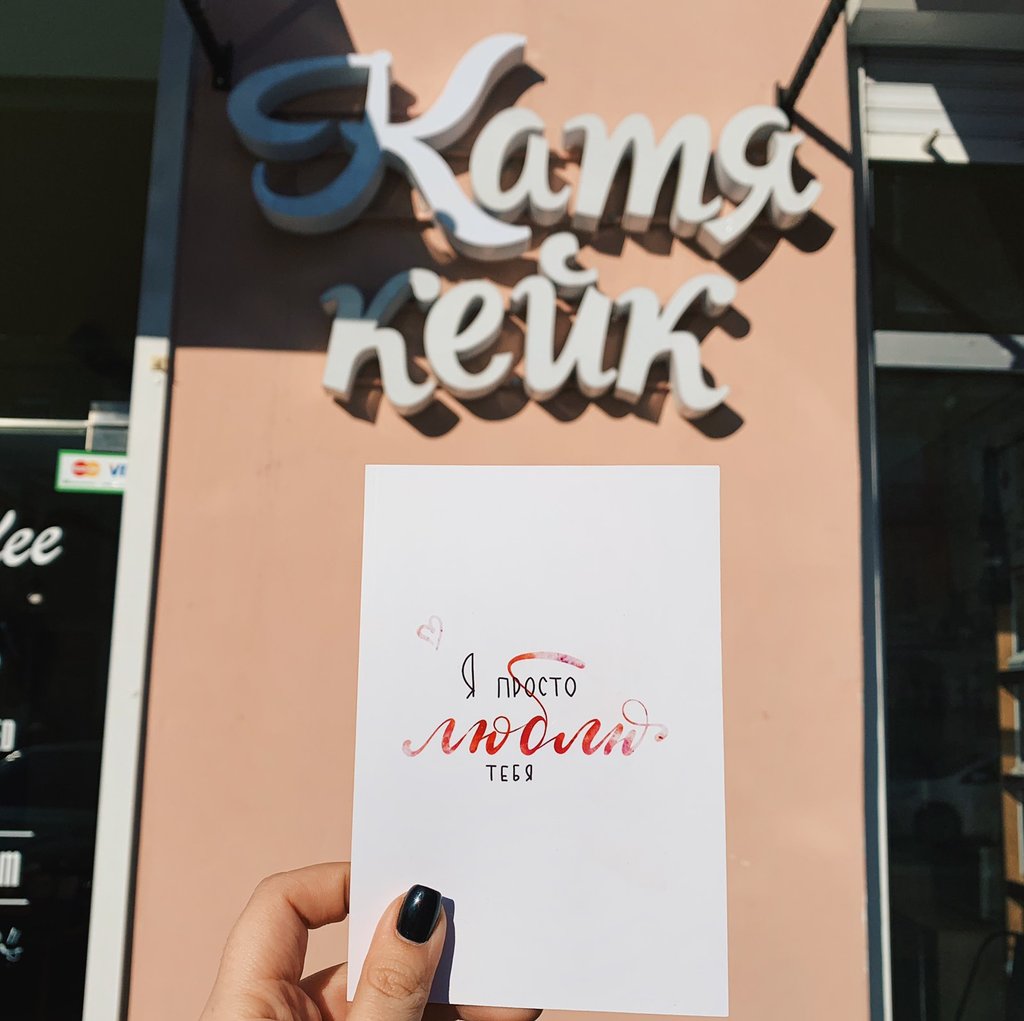 Катя
кейк
Я просто
люблю
тебя